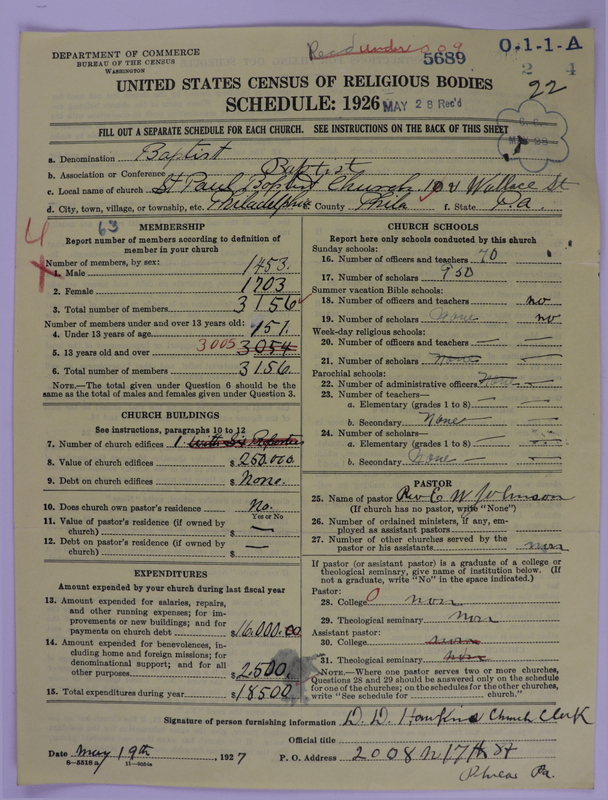 Rec'd under 009
5689
O-1-1-A
2 4
22
DEPARTMENT OF COMMERCE
BUREAU OF THE CENSUS
WASHINGTON
UNITED STATES CENSUS OF RELIGIOUS BODIES
SCHEDULE: 1926
MAY 28 Rec'd
FILL OUT A SEPARATE SCHEDULE FOR EACH CHURCH. SEE INSTRUCTIONS ON THE BACK OF THIS SHEET
a. Denomination Baptist
b. Association or Conference Baptist
c. Local name of church St Paul Baptist Church Wallace St
d. City, town, village, or township, etc. Philadelphia e. County Phila f. State Pa.
4 63
MEMBERSHIP
Report number of members according to definition of
member in your church
Number of members, by sex:
1. Male 1453.
2. Female 1703
3. Total number of members 3156
Number of members under and over 13 years old:
4. Under 13 years of age 151.
5. 13 years old and over 3005 3054
6. Total number of members 3156.
NOTE.—The total given under Question 6 should be the
same as the total of males and females given under Question 3.
CHURCH BUILDINGS
See instructions, paragraphs 10 to 12
7. Number of church edifices 1.
8. Value of church edifices $ 250.000.
9. Debt on church edifices $ None.
10. Does church own pastor's residence No.
Yes or No
11. Value of pastor's residence (if owned by
church) $ —
12. Debt on pastor's residence (if owned by
church) $ —
EXPENDITURES
Amount expended by your church during last fiscal year
13. Amount expended for salaries, repairs,
and other running expenses; for im-
provements or new buildings; and for
payments on church debt $ 16.000.00
14. Amount expended for benevolences, in-
cluding home and foreign missions; for
denominational support; and for all
other purposes $ 2500.
15. Total expenditures during year $ 18500
CHURCH SCHOOLS
Report here only schools conducted by this church
Sunday schools:
16. Number of officers and teachers 70
17. Number of scholars 950
Summer vacation Bible schools:
18. Number of officers and teachers no
19. Number of scholars None no
Week-day religious schools:
20. Number of officers and teachers — —
21. Number of scholars None —
Parochial schools:
22. Number of administrative officers None —
23. Number of teachers—
a. Elementary (grades 1 to 8) — —
b. Secondary None —
24. Number of scholars—
a. Elementary (grades 1 to 8) —
b. Secondary None —
PASTOR
25. Name of pastor Rev E W Johnson
(If church has no pastor, write "None")
26. Number of ordained ministers, if any, em-
ployed as assistant pastors
27. Number of other churches served by the
pastor or his assistants non
If pastor (or assistant pastor) is a graduate of a college or
theological seminary, give name of institution below. (If
not a graduate, write "No" in the space indicated.)
Pastor:
28. College 0 non
29. Theological seminary non
Assistant pastor:
30. College non
31. Theological seminary non
NOTE.—Where one pastor serves two or more churches,
Questions 28 and 29 should be answered only on the schedule
for one of the churches; on the schedules for the other churches,
write "See schedule for church."
Signature of person furnishing information D. D. Hawkins Church Clerk
Official title
Date May 19th, 1927 P. O. Address 2008 N 17th St
8—5518 a
Pa.